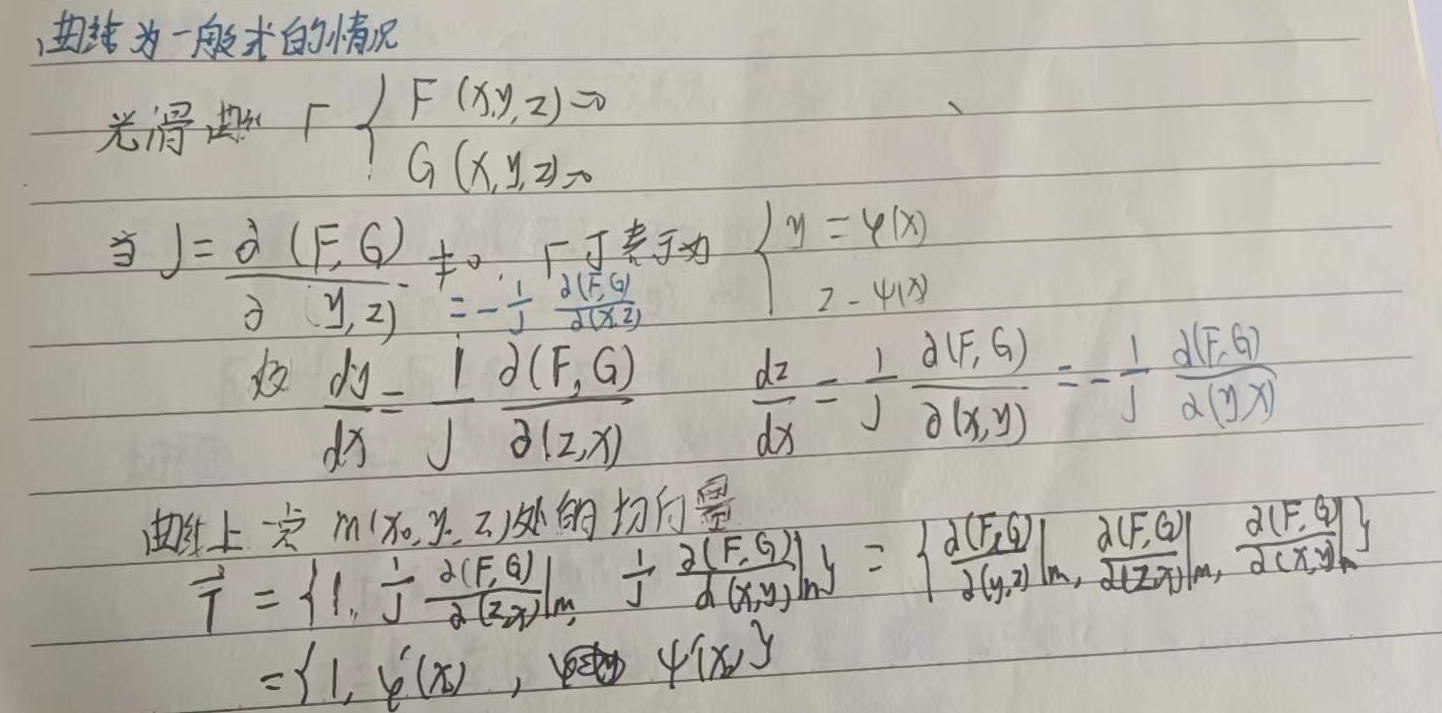 曲线为一般式的情况
光滑曲线 Γ { F(x,y,z)=0
G(x,y,z)=0
当 J = ∂(F,G)/∂(y,z) ≠ 0. Γ可表示为 { y = φ(x)
z = ψ(x)
= -1/J ∂(F,G)/∂(x,z)
故 dy/dx = 1/J ∂(F,G)/∂(z,x) dz/dx = 1/J ∂(F,G)/∂(x,y) = -1/J ∂(F,G)/∂(y,x)
曲线上一点 m(x₀,y₀,z₀)处的切向量
T⃗ = {1, 1/J ∂(F,G)/∂(z,x)|m, 1/J ∂(F,G)/∂(x,y)|m} = {∂(F,G)/∂(y,z)|m, ∂(F,G)/∂(z,x)|m, ∂(F,G)/∂(x,y)|m}
= {1, φ'(x₀), ψ'(x₀)}